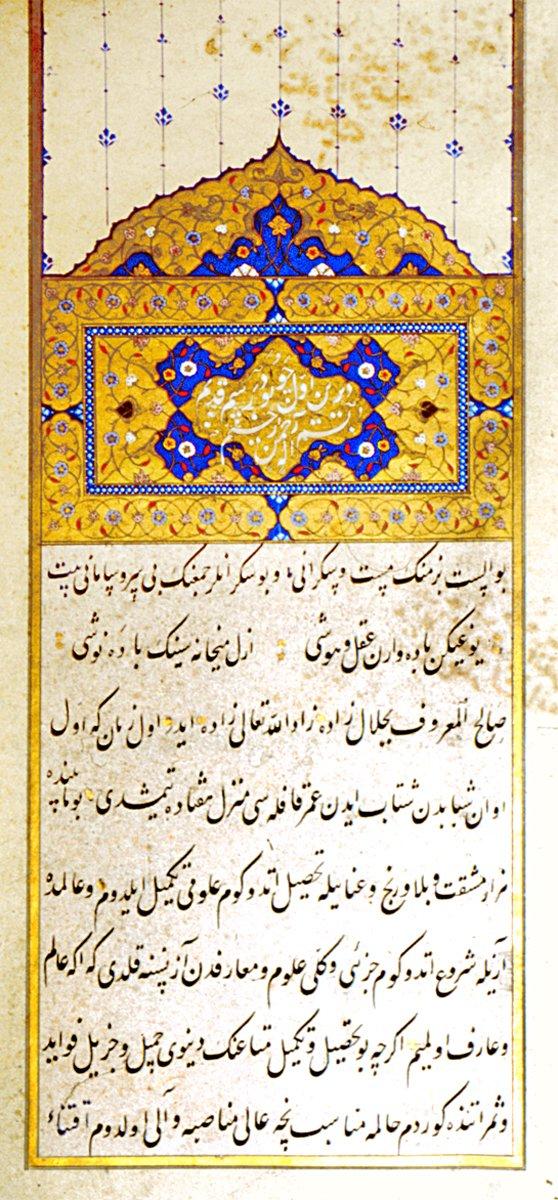 درون اول خوبو در رسم قدیم
بو الست بزمنك مست و سكرانی و بو سكرانلر جمعنك بی سر و سامانی مست
یوغیكن باده وارن عقل و هوشی ازل میخانه سینك باده نوشی
صالح المعروف بجلال زاده زاد الله تعالی زاده ایدر اول زمان كه اول
اوان شبابدن شتاب ایدن عمر قافله سی منزل هفتاده یتمیشدی بو مابنده
هزار مشقت و بلا و رنج و عنایله تحصیل اتدوكوم علومی تكمیل ایلیدوم و عالمده
آزیله شروع اتدوكوم جزئی و كلی علوم و معارفدن آز نسنه قلدی كه اكه عالم
و عارف اولمیم اكرچه بو تحصیل و تكمیل متاعنك دینوی جمیل و جزیل فواید
و ثمراتنده كوردم حالمه مناسب نچه عالی مناصبه والی اولدوم اقتناء